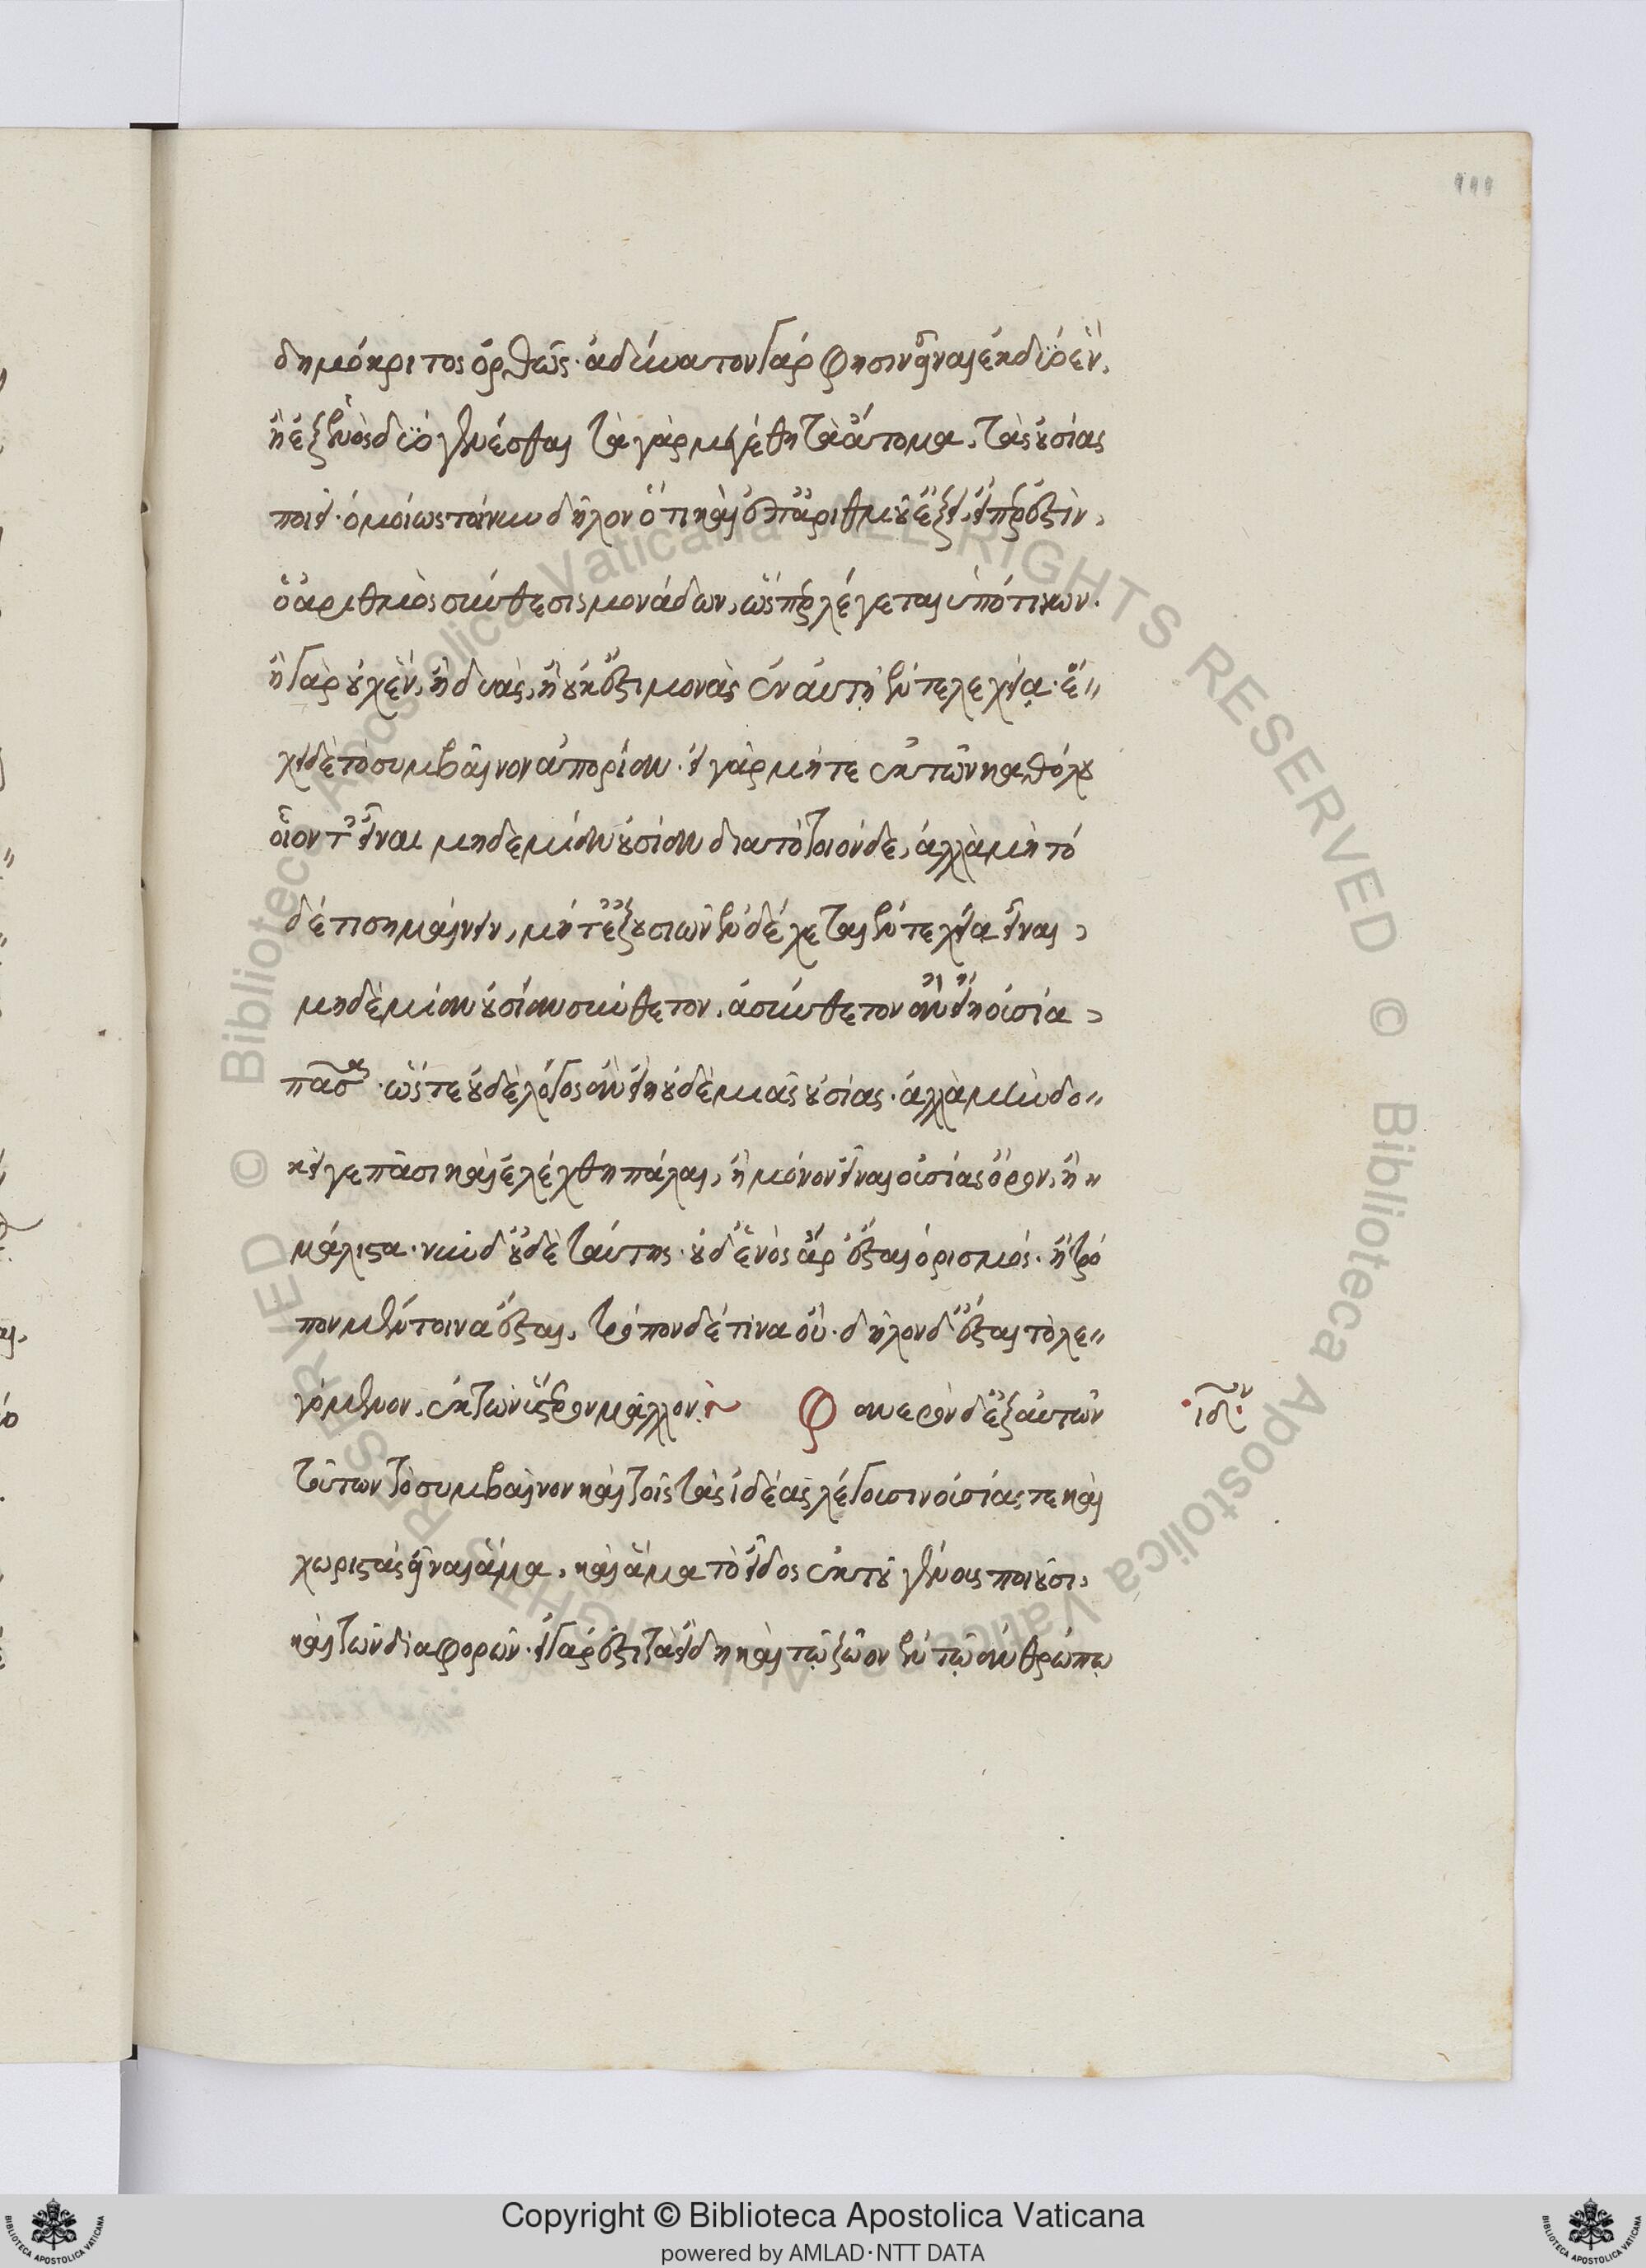 111
δημόκριτος ὀρθῶς· ἀδύνατον γάρ φησιν εἶναι ἐκ δύο ἓν,
ἢ ἐξ ἑνὸς δύο γενέσθαι τὰ γὰρ μεγέθη τὰ ἄτομα, τὰς οὐσίας
ποιεῖ· ὁμοίως τοίνυν δῆλον ὅτι καὶ ἐπ' ἀριθμοῦ ἕξει, εἴπερ ἐστὶν,
ὁ ἀριθμὸς σύνθεσις μονάδων, ὥσπερ λέγεται ὑπό τινων·
ἢ γὰρ οὐχ ἓν, ἡ δυὰς, ἢ οὐκ ἔστι μονὰς ἐν αὐτῇ ἐντελεχείᾳ· ἔ〃
χει δὲ τὸ συμβαῖνον ἀπορίαν· εἰ γὰρ μήτε ἐκ τῶν καθόλου
οἷόν τ' εἶναι μηδεμίαν οὐσίαν διὰ τὸ τοιόνδε, ἀλλὰ μὴ τό
δέ τι σημαίνειν, μήτ' ἐξ οὐσιῶν ἐνδέχεται ἐντελεχείᾳ εἶναι,
μηδεμίαν οὐσίαν σύνθετον, ἀσύνθετον ἂν εἴη οὐσία,
πᾶσα· ὥστε οὐδὲ λόγος ἂν εἴη οὐδεμιᾶς οὐσίας· ἀλλὰ μὴν δο〃
κεῖ γε πᾶσι καὶ ἐλέχθη πάλαι, ἢ μόνον εἶναι οὐσίας ὅρον, ἢ〃
μάλιστα· νῦν δ' οὐδὲ ταύτης· οὐδενὸς ἄρ' ἔσται ὁρισμός· ἢ τρό
πον μέν τοινα ἔσται, τρόπον δέ τινα οὔ· δῆλον δ' ἔσται τὸ λε〃
γόμενον, ἐκ τῶν ὕστερον μᾶλλον:~ Φανερὸν δ' ἐξ αὐτῶν
·ιδ·
τούτων τὸ συμβαῖνον καὶ τοῖς τὰς ἰδέας λέγουσιν οὐσίας τε καὶ
χωριστὰς εἶναι ἅμα, καὶ ἅμα τὸ εἶδος ἐκ τοῦ γένους ποιοῦσι,
καὶ τῶν διαφορῶν· εἰ γάρ ἐστι τὰ εἴδη καὶ τῷ ζῶον ἐν τῷ ἀνθρώπῳ
Copyright © Biblioteca Apostolica Vaticana
powered by AMLAD·NTT DATA
© Biblioteca Apostolica Vaticana ALL RIGHTS RESERVED © Biblioteca Apostolica Vaticana ALL RIGHTS RESERVED
BIBLIOTECA APOSTOLICA VATICANA
BIBLIOTECA APOSTOLICA VATICANA